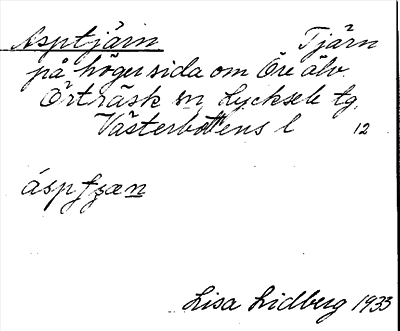 Asptjärn Tjärn
på höger sida om Öre älv.
Örträsk sn Lycksele tg.
Västerbottens l 12
Lisa Lidberg 1933